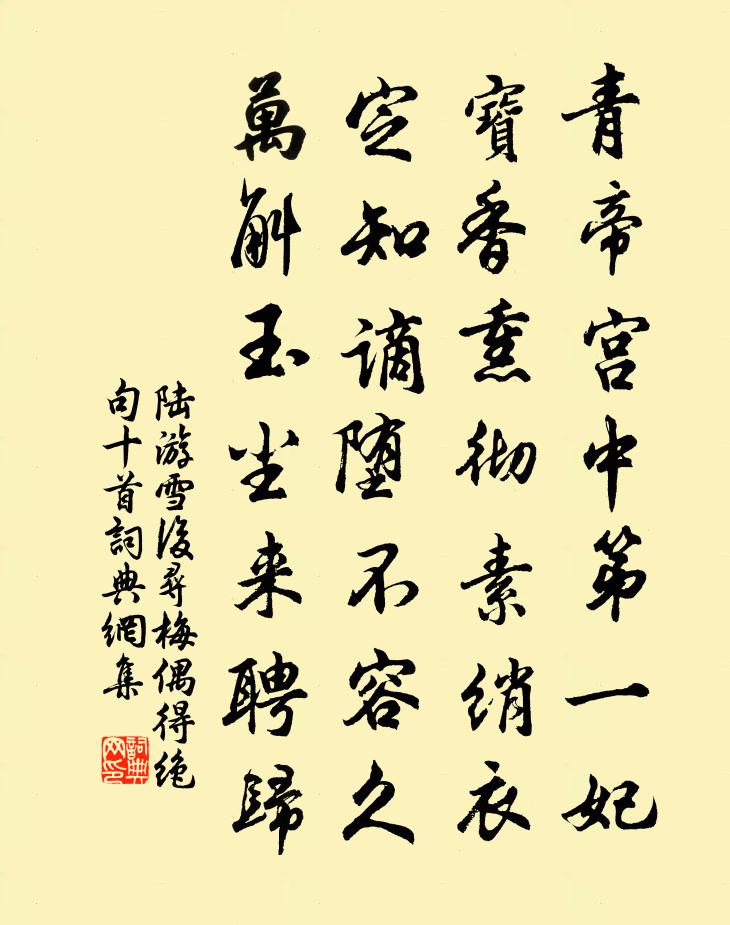 青帝宫中第一妃
寶香熏彻素綃衣
定知谪堕不容久
萬斛玉尘来聘歸
陆游雪後尋梅偶得绝
句十首詞典網集
詞典
网印